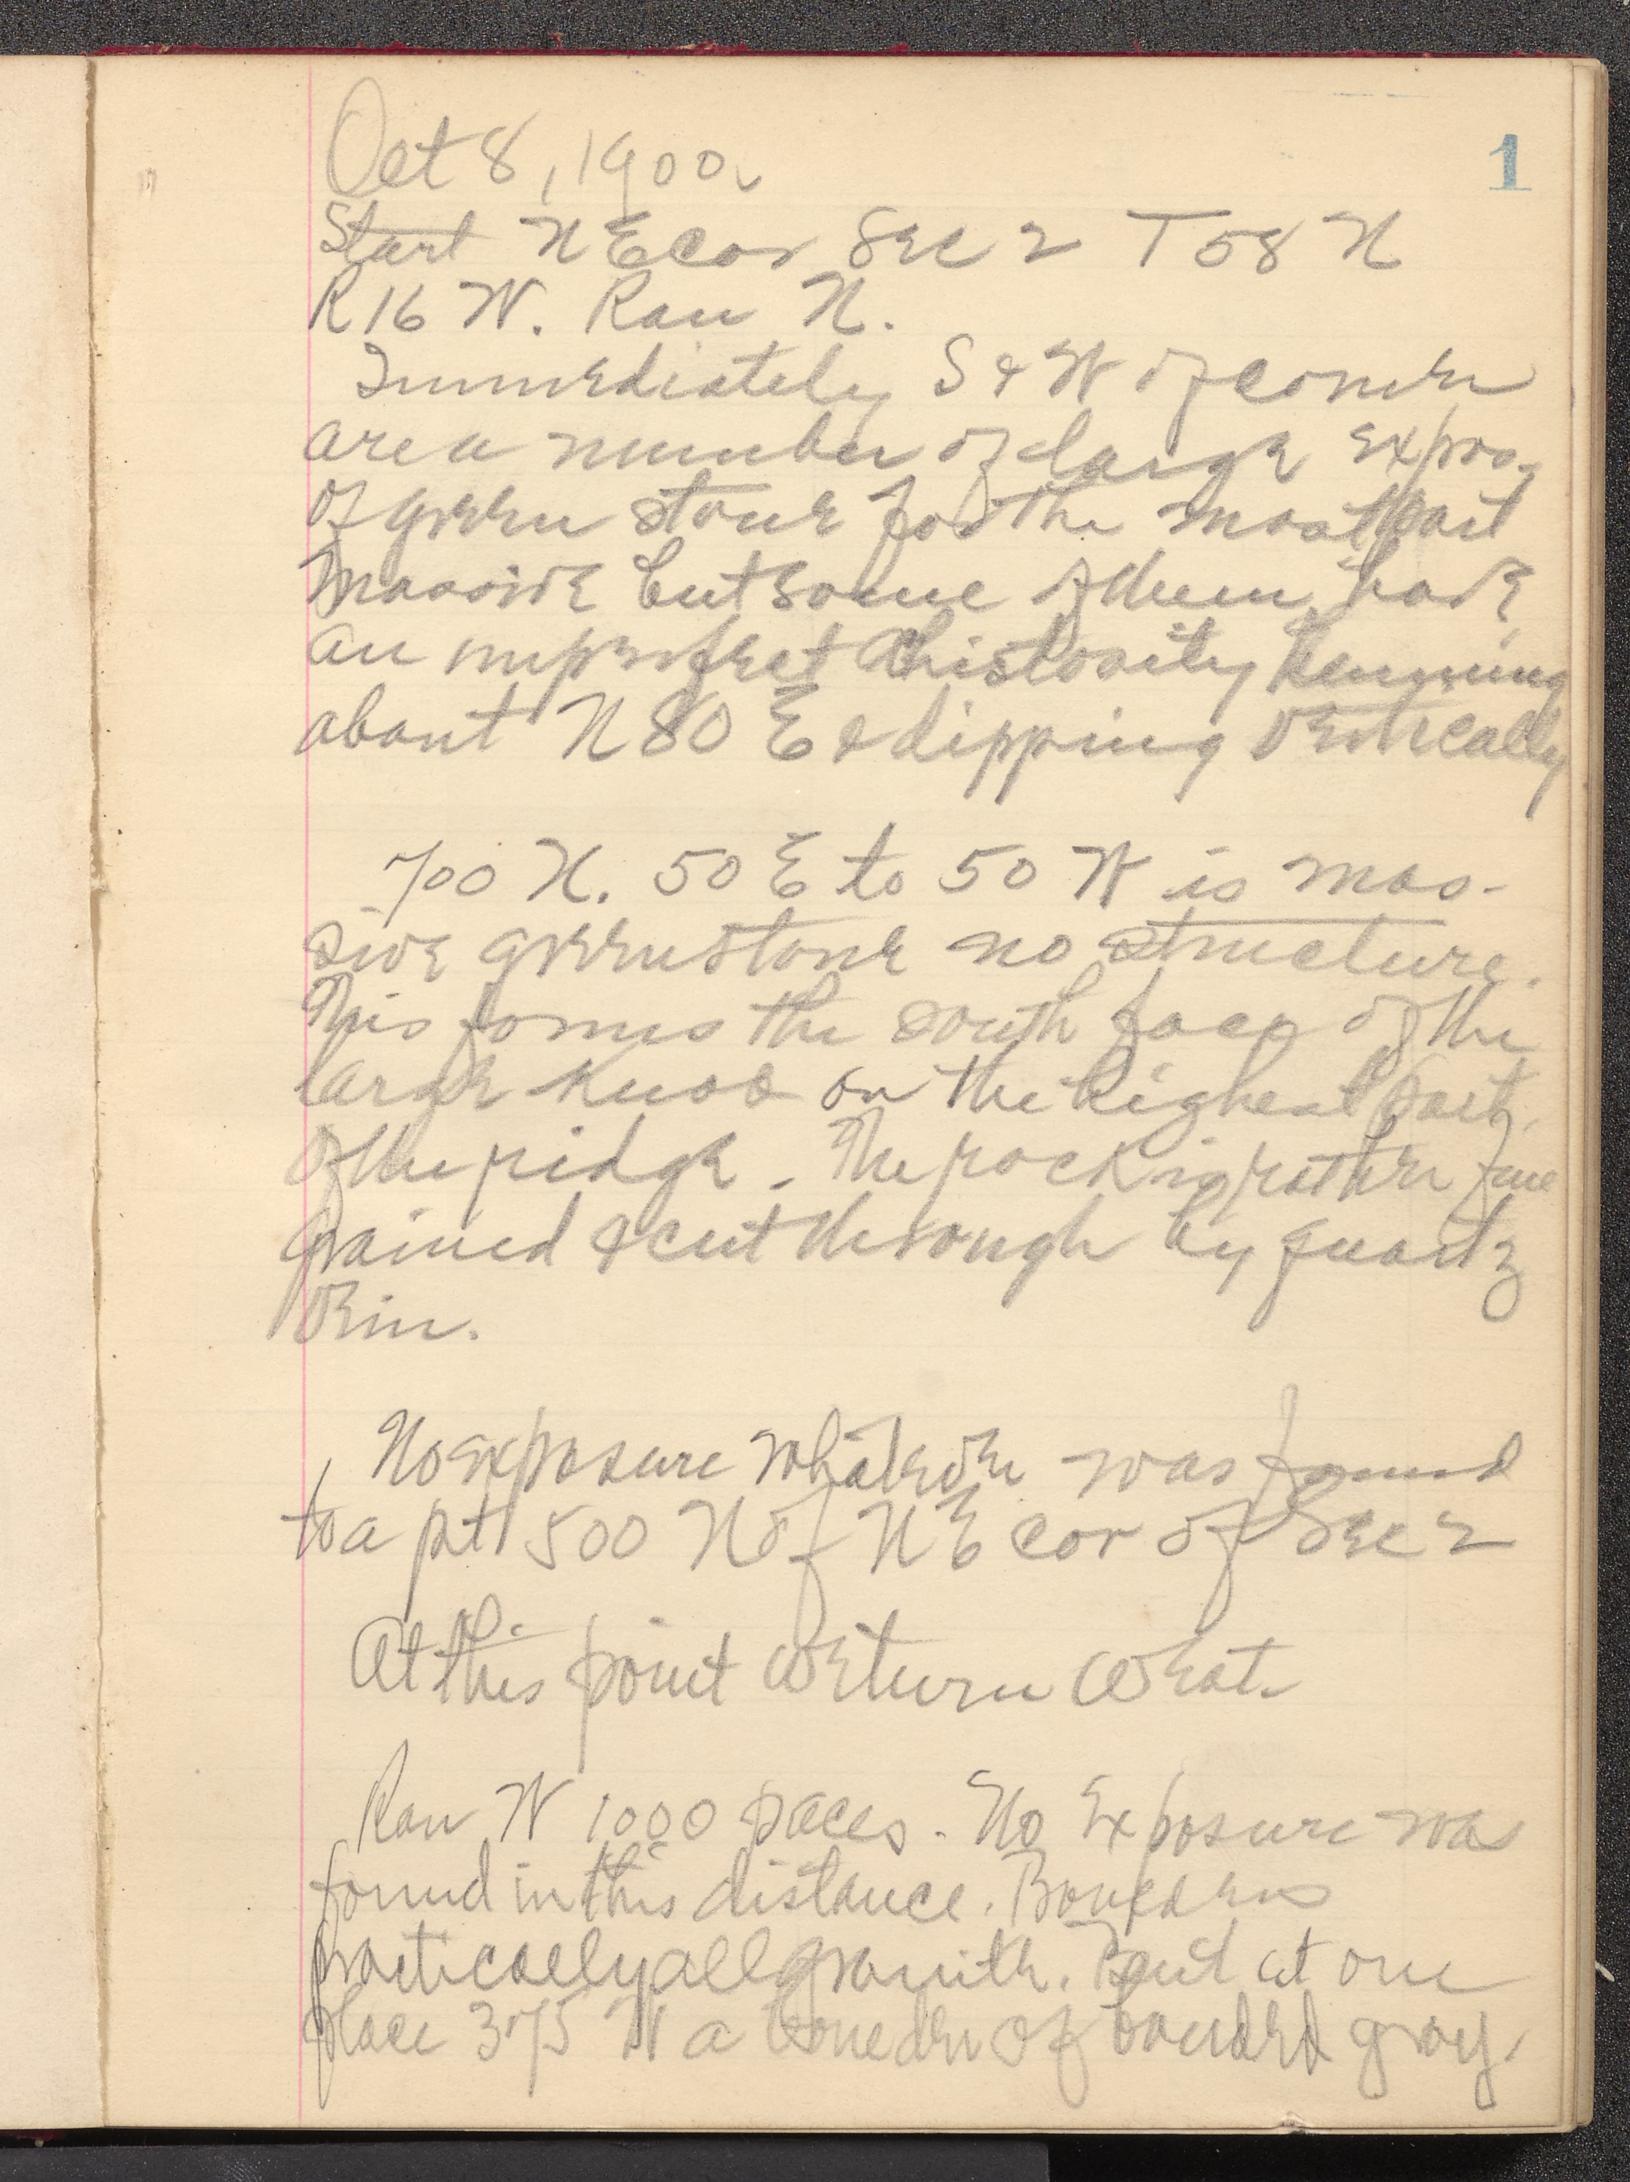 1
Oct 8, 1900.
Start N E cor Sec 2 T 58 N
R 16 W. Ran N.
Immediately S & W of corner
are a number of large expos.
of green stone for the most part
massive but some of them have
an imperfect schistosity
about N 80 E & dipping vertically
700 N. 50 E to 50 W is mas-
sive greenstone no structure.
This forms the south face of the
large knob on the highest part
of the ridge. The rock is rather fine
grained & cut through by quartz
vein.
No exposure whatever was found
to a pt 500 N of N E cor of Sec 2
At this point we turn West.
Ran W 1000 paces. No exposure was
found in this distance. Boulders
practically all granite. But at one
place 375 W a boulder of banded gray